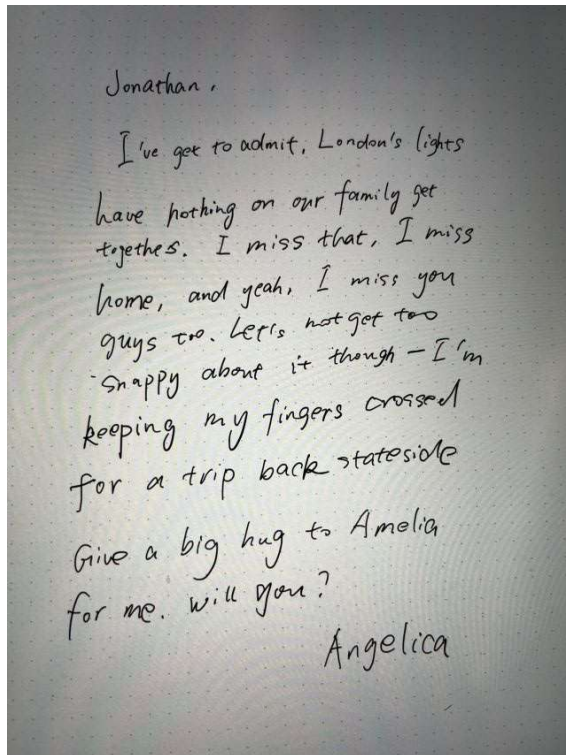 Jonathan,
I've got to admit, London's lights
have nothing on our family get
togethes. I miss that, I miss
home, and yeah, I miss you
guys too. Let's not get too
snappy about it though - I'm
keeping my fingers crossed
for a trip back stateside
Give a big hug to Amelia
for me. will you?
Angelica